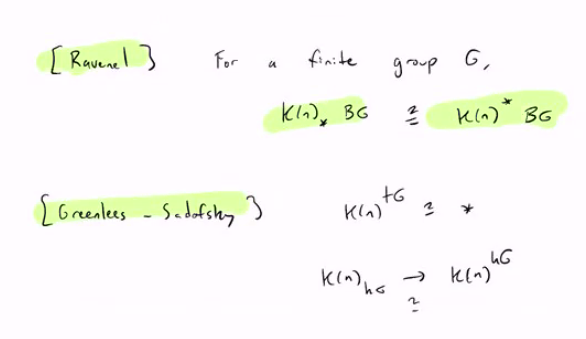 [Ravenel] For a finite group G,
K(n)_* BG ≅ K(n)^* BG
[Greenlees - Sadofsky] K(n)^{tG} ≃ *
K(n)_{hG} → K(n)^{hG}
≃